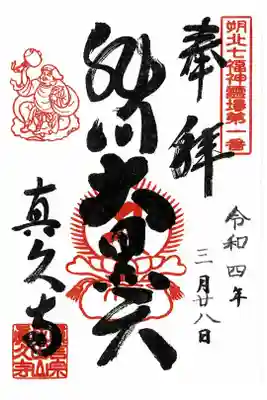 朔北七福神霊場第一番
奉拝
令和四年
三月廿八日
大黒天
真久寺